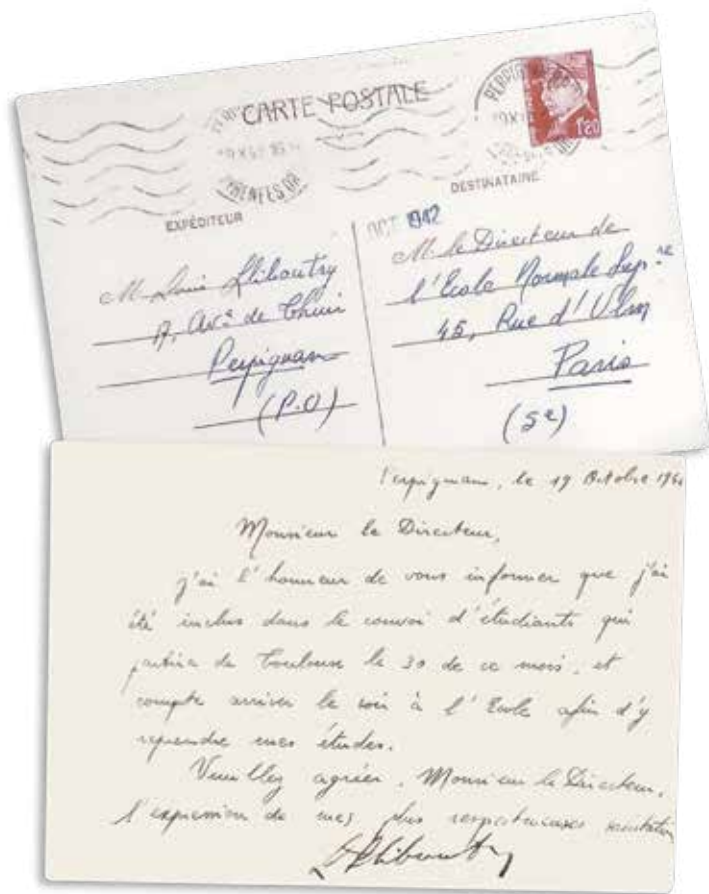 CARTE POSTALE
PYRENEES OR.
1f20
EXPÉDITEUR
DESTINATAIRE
OCT 1942
M. Louis Lliboutry
Av. de
Perpignan
(P.O)
M. le Directeur de
l'Ecole Normale Supre
45, Rue d'Ulm
Paris
(5e)
Perpignan, le 19 Octobre
Monsieur le Directeur,
j'ai l'honneur de vous informer que j'ai
été inclus dans le convoi d'étudiants qui
partira de Toulouse le 30 de ce mois, et
compte arriver le soir à l'Ecole afin d'y
reprendre mes études.
Veuillez agréer, Monsieur le Directeur,
l'expression de mes plus respectueuses salutations
LLliboutry